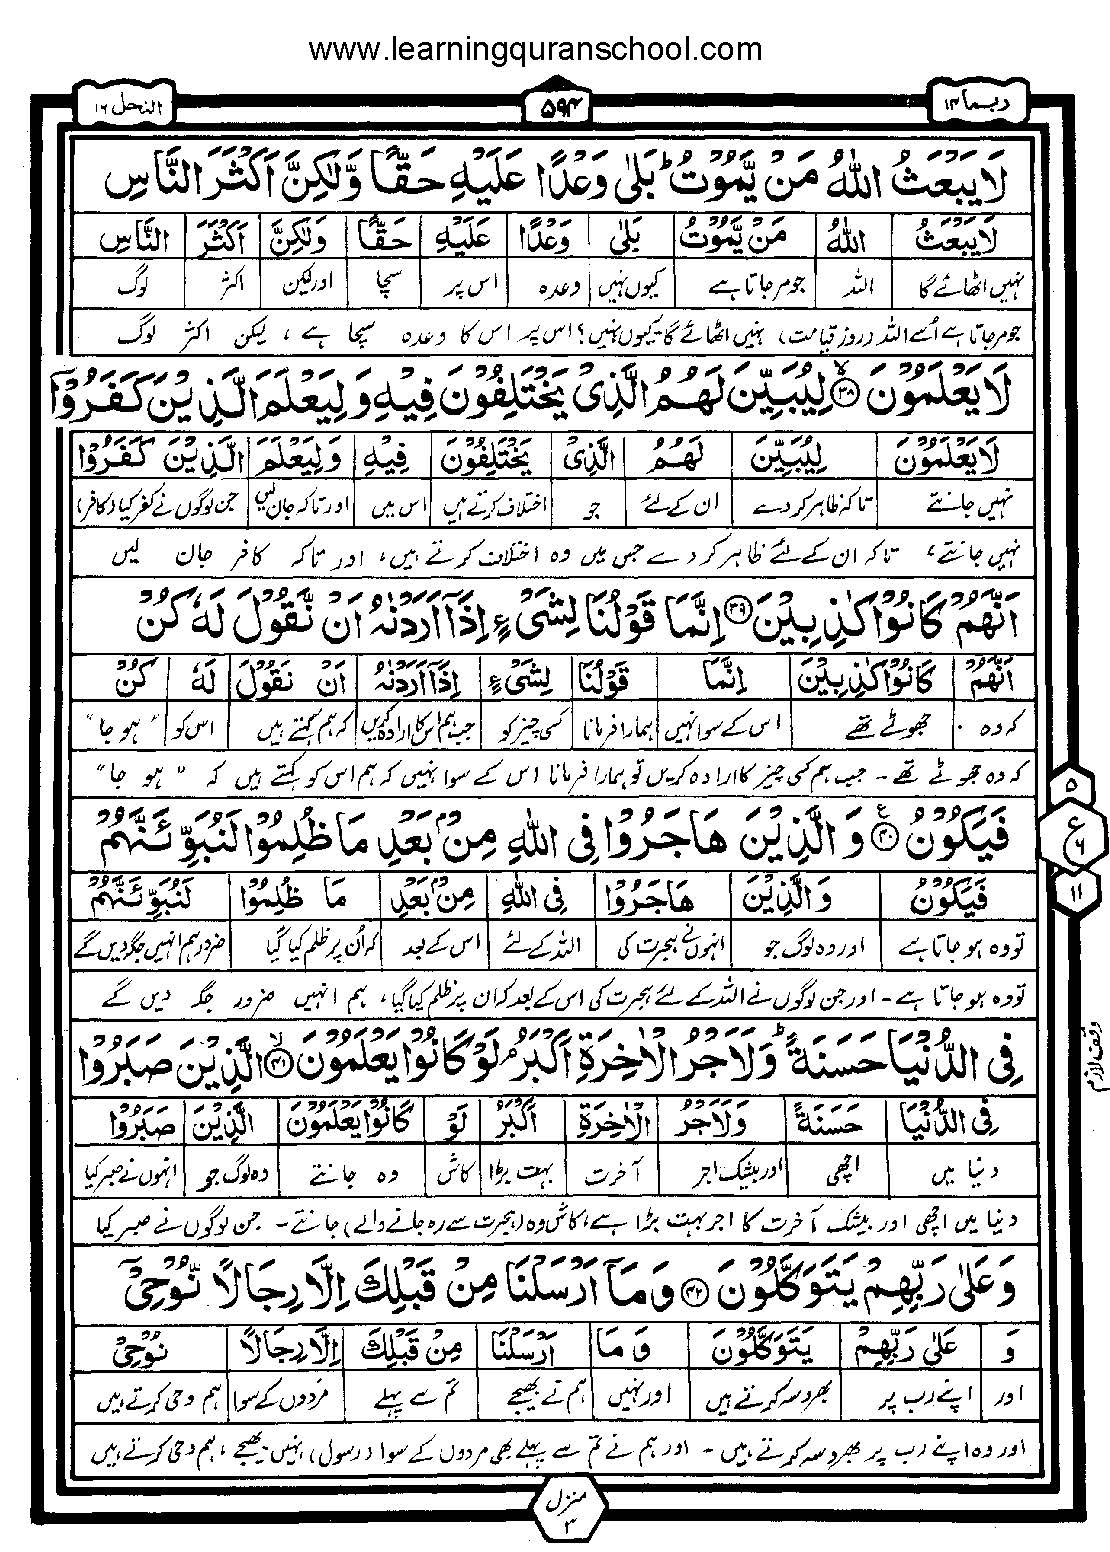 www.learningquranschool.com
ربما ۱۴
۵۹۴
النحل ۱۶
لَا يَبْعَثُ اللّٰهُ مَنْ يَّمُوْتُ ؕ بَلٰى وَعْدًا عَلَيْهِ حَقًّا وَّلٰكِنَّ اَكْثَرَ النَّاسِ
لَا يَبْعَثُ اللّٰهُ مَنْ يَّمُوْتُ بَلٰى وَعْدًا عَلَيْهِ حَقًّا وَلٰكِنَّ اَكْثَرَ النَّاسِ
نہیں اٹھائے گا اللہ جو مر جاتا ہے کیوں نہیں وعدہ اس پر سچا اور لیکن اکثر لوگ
جو مر جاتا ہے اُسے اللہ (روز قیامت) نہیں اٹھائے گا۔ کیوں نہیں؟ اس پر اس کا وعدہ سچا ہے ، لیکن اکثر لوگ
لَا يَعْلَمُوْنَ ۙ‏﴿۳۸﴾ لِيُبَيِّنَ لَهُمُ الَّذِىْ يَخْتَلِفُوْنَ فِيْهِ وَلِيَعْلَمَ الَّذِيْنَ كَفَرُوْۤا
لَا يَعْلَمُوْنَ لِيُبَيِّنَ لَهُمُ الَّذِىْ يَخْتَلِفُوْنَ فِيْهِ وَلِيَعْلَمَ الَّذِيْنَ كَفَرُوْا
نہیں جانتے تاکہ ظاہر کردے ان کے لئے جو اختلاف کرتے ہیں اس میں اور تاکہ جان لیں جن لوگوں نے کفر کیا (کافر)
نہیں جانتے ، تاکہ ان کے لئے ظاہر کر دے جس میں وہ اختلاف کرتے ہیں، اور تاکہ کافر جان لیں
اَنَّهُمْ كَانُوْا كٰذِبِيْنَ ﴿۳۹﴾ اِنَّمَا قَوْلُنَا لِشَىْءٍ اِذَاۤ اَرَدْنٰهُ اَنْ نَّقُوْلَ لَهٗ كُنْ
اَنَّهُمْ كَانُوْا كٰذِبِيْنَ اِنَّمَا قَوْلُنَا لِشَىْءٍ اِذَاۤ اَرَدْنٰهُ اَنْ نَقُوْلَ لَهٗ كُنْ
کہ وہ جھوٹے تھے اس کے سوا نہیں ہمارا فرمانا کسی چیز کو جب ہم اس کا ارادہ کریں کہ ہم کہتے ہیں اس کو "ہو جا"
کہ وہ جھوٹے تھے ۔ جب ہم کسی چیز کا ارادہ کریں تو ہمارا فرمانا اس کے سوا نہیں کہ ہم اس کو کہتے ہیں کہ "ہو جا"
فَيَكُوْنُ ﴿۴۰﴾ وَالَّذِيْنَ هَاجَرُوْا فِى اللّٰهِ مِنْۢ بَعْدِ مَا ظُلِمُوْا لَنُبَوِّئَنَّهُمْ
ع
۵
ع ۶
۱۱
فَيَكُوْنُ وَالَّذِيْنَ هَاجَرُوْا فِى اللّٰهِ مِنْۢ بَعْدِ مَا ظُلِمُوْا لَنُبَوِّئَنَّهُمْ
تو وہ ہو جاتا ہے اور وہ لوگ جو انہوں نے ہجرت کی اللہ کے لئے اس کے بعد کہ اُن پر ظلم کیا گیا ضرور ہم انہیں جگہ دیں گے
تو وہ ہو جاتا ہے ۔ اور جن لوگوں نے اللہ کے لئے ہجرت کی اس کے بعد کہ ان پر ظلم کیا گیا ، ہم انہیں ضرور جگہ دیں گے
فِى الدُّنْيَا حَسَنَةً ؕ وَلَاَجْرُ الْاٰخِرَةِ اَكْبَرُ ۘ لَوْ كَانُوْا يَعْلَمُوْنَ ۙ‏﴿۴۱﴾ الَّذِيْنَ صَبَرُوْا
وقف لازم
فِى الدُّنْيَا حَسَنَةً وَلَاَجْرُ الْاٰخِرَةِ اَكْبَرُ لَوْ كَانُوْا يَعْلَمُوْنَ الَّذِيْنَ صَبَرُوْا
دنیا میں اچھی اور بیشک اجر آخرت بہت بڑا کاش وہ جانتے وہ لوگ جو انہوں نے صبر کیا
دنیا میں اچھی اور بیشک آخرت کا اجر بہت بڑا ہے، کاش وہ (ہجرت سے رہ جانے والے) جانتے ۔ جن لوگوں نے صبر کیا
وَعَلٰى رَبِّهِمْ يَتَوَكَّلُوْنَ ﴿۴۲﴾ وَمَاۤ اَرْسَلْنَا مِنْ قَبْلِكَ اِلَّا رِجَالًا نُّوْحِىْۤ
وَ عَلٰى رَبِّهِمْ يَتَوَكَّلُوْنَ وَمَا اَرْسَلْنَا مِنْ قَبْلِكَ اِلَّا رِجَالًا نُوْحِىْ
اور اپنے رب پر بھروسہ کرتے ہیں اور نہیں ہم نے بھیجے تم سے پہلے مردوں کے سوا ہم وحی کرتے ہیں
اور وہ اپنے رب پر بھروسہ کرتے ہیں ۔ اور ہم نے تم سے پہلے بھی مردوں کے سوا (رسول) نہیں بھیجے ، ہم وحی کرتے ہیں
منزل ۳